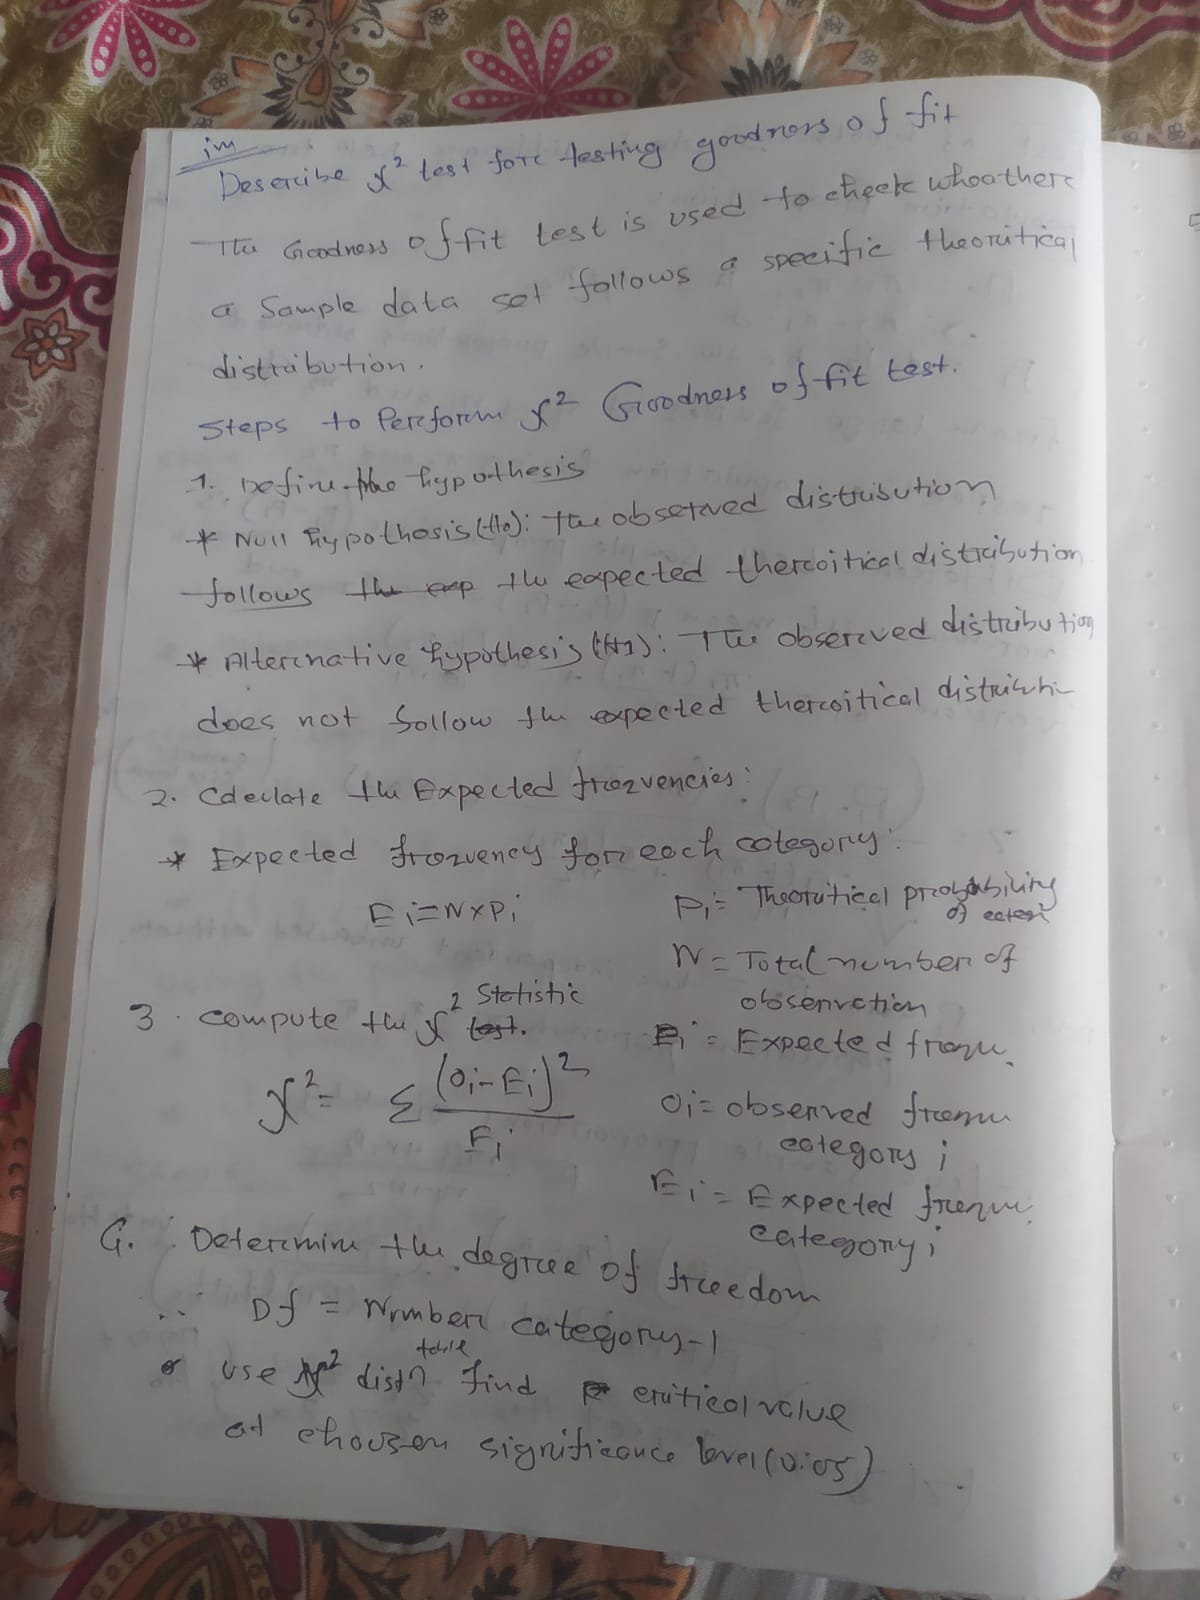 im
Desercibe χ² test fore testing goodness of fit
The Goodness of fit test is used to check whoathere
a Sample data set follows a specific theoritical
distribution.
Steps to Perform χ² Goodness of fit test.
1. Define the hypothesis
* Null hypothesis (H0): The observed distribution
follows the exp the expected thercoitical distribution
* Alternative hypothesis (H1): The observed distribution
does not follow the expected thercoitical distributi
2. Calculate the Expected frequencies:
* Expected frequency for each category:
Ei=N×Pi
Pi= Theoritical probability
of categori
N = Total number of
observation
Ei = Expected frequ.
3. compute the χ² test. Statistic
χ² = Σ (Oi-Ei)² / Ei
Oi= observed frequ
category i
Ei = Expected frequ.
category i
4. Determine the degree of freedom
∴ Df = Number category-1
use χ² distn table find critical value
at choosen significance level (0.05)